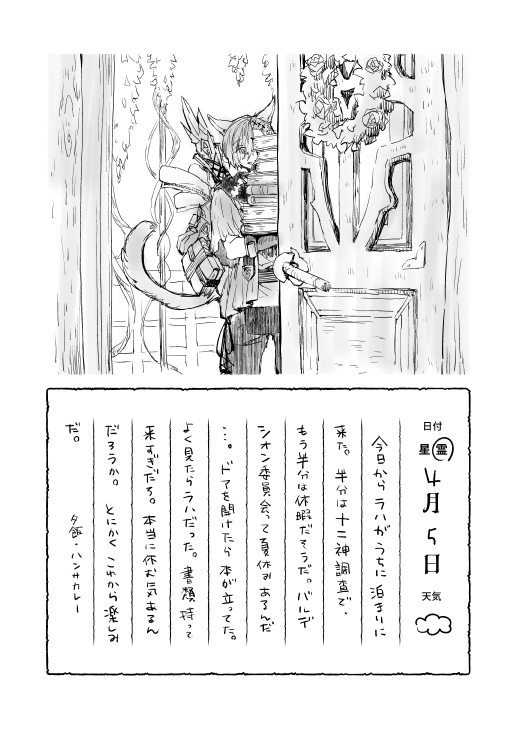 日付
星 霊
4月5日
天気
今日からラハがうちに泊まりに
来た。半分は十二神調査で、
もう半分は休暇だそうだ。バルデ
シオン委員会って夏休みあるんだ
…。ドアを開けたら本が立ってた。
よく見たらラハだった。書類持って
来すぎだろ。本当に休む気あるん
だろうか。とにかくこれから楽しみ
だ。
夕飯・ハンサカレー